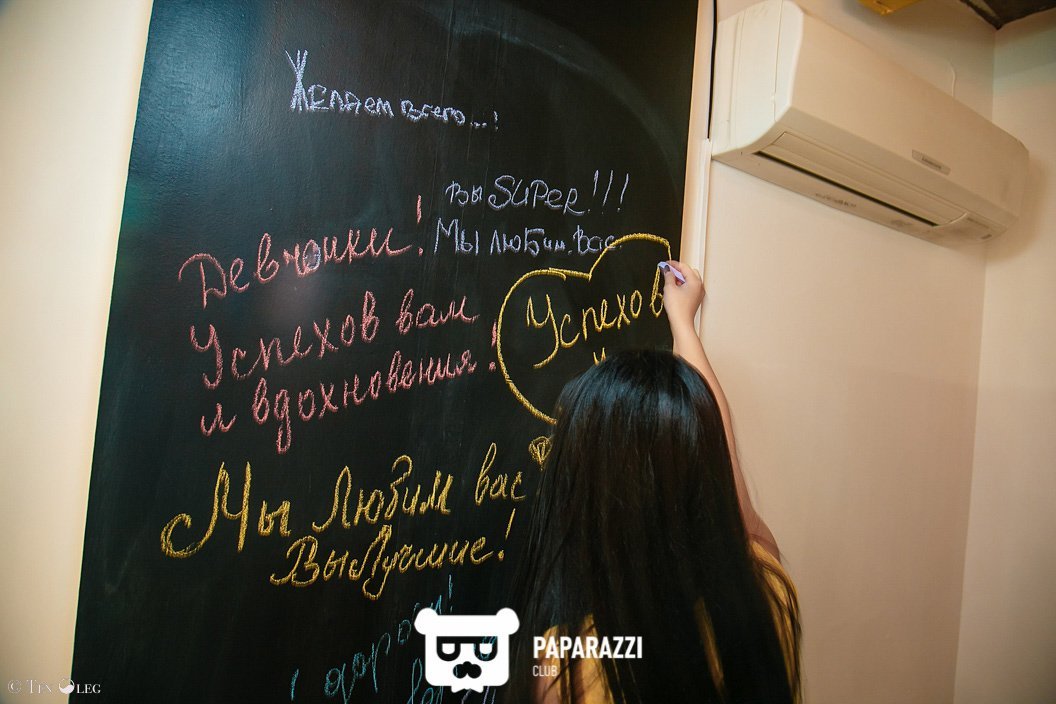 Желаем всего...!
Вы SUPER!!!
Мы любим. Вас
Девчонки!
Успехов вам
и вдохновения!
Успехов
и
Мы Любим вас
Вы Лучшие!
PAPARAZZI
CLUB
© TEN OLEG